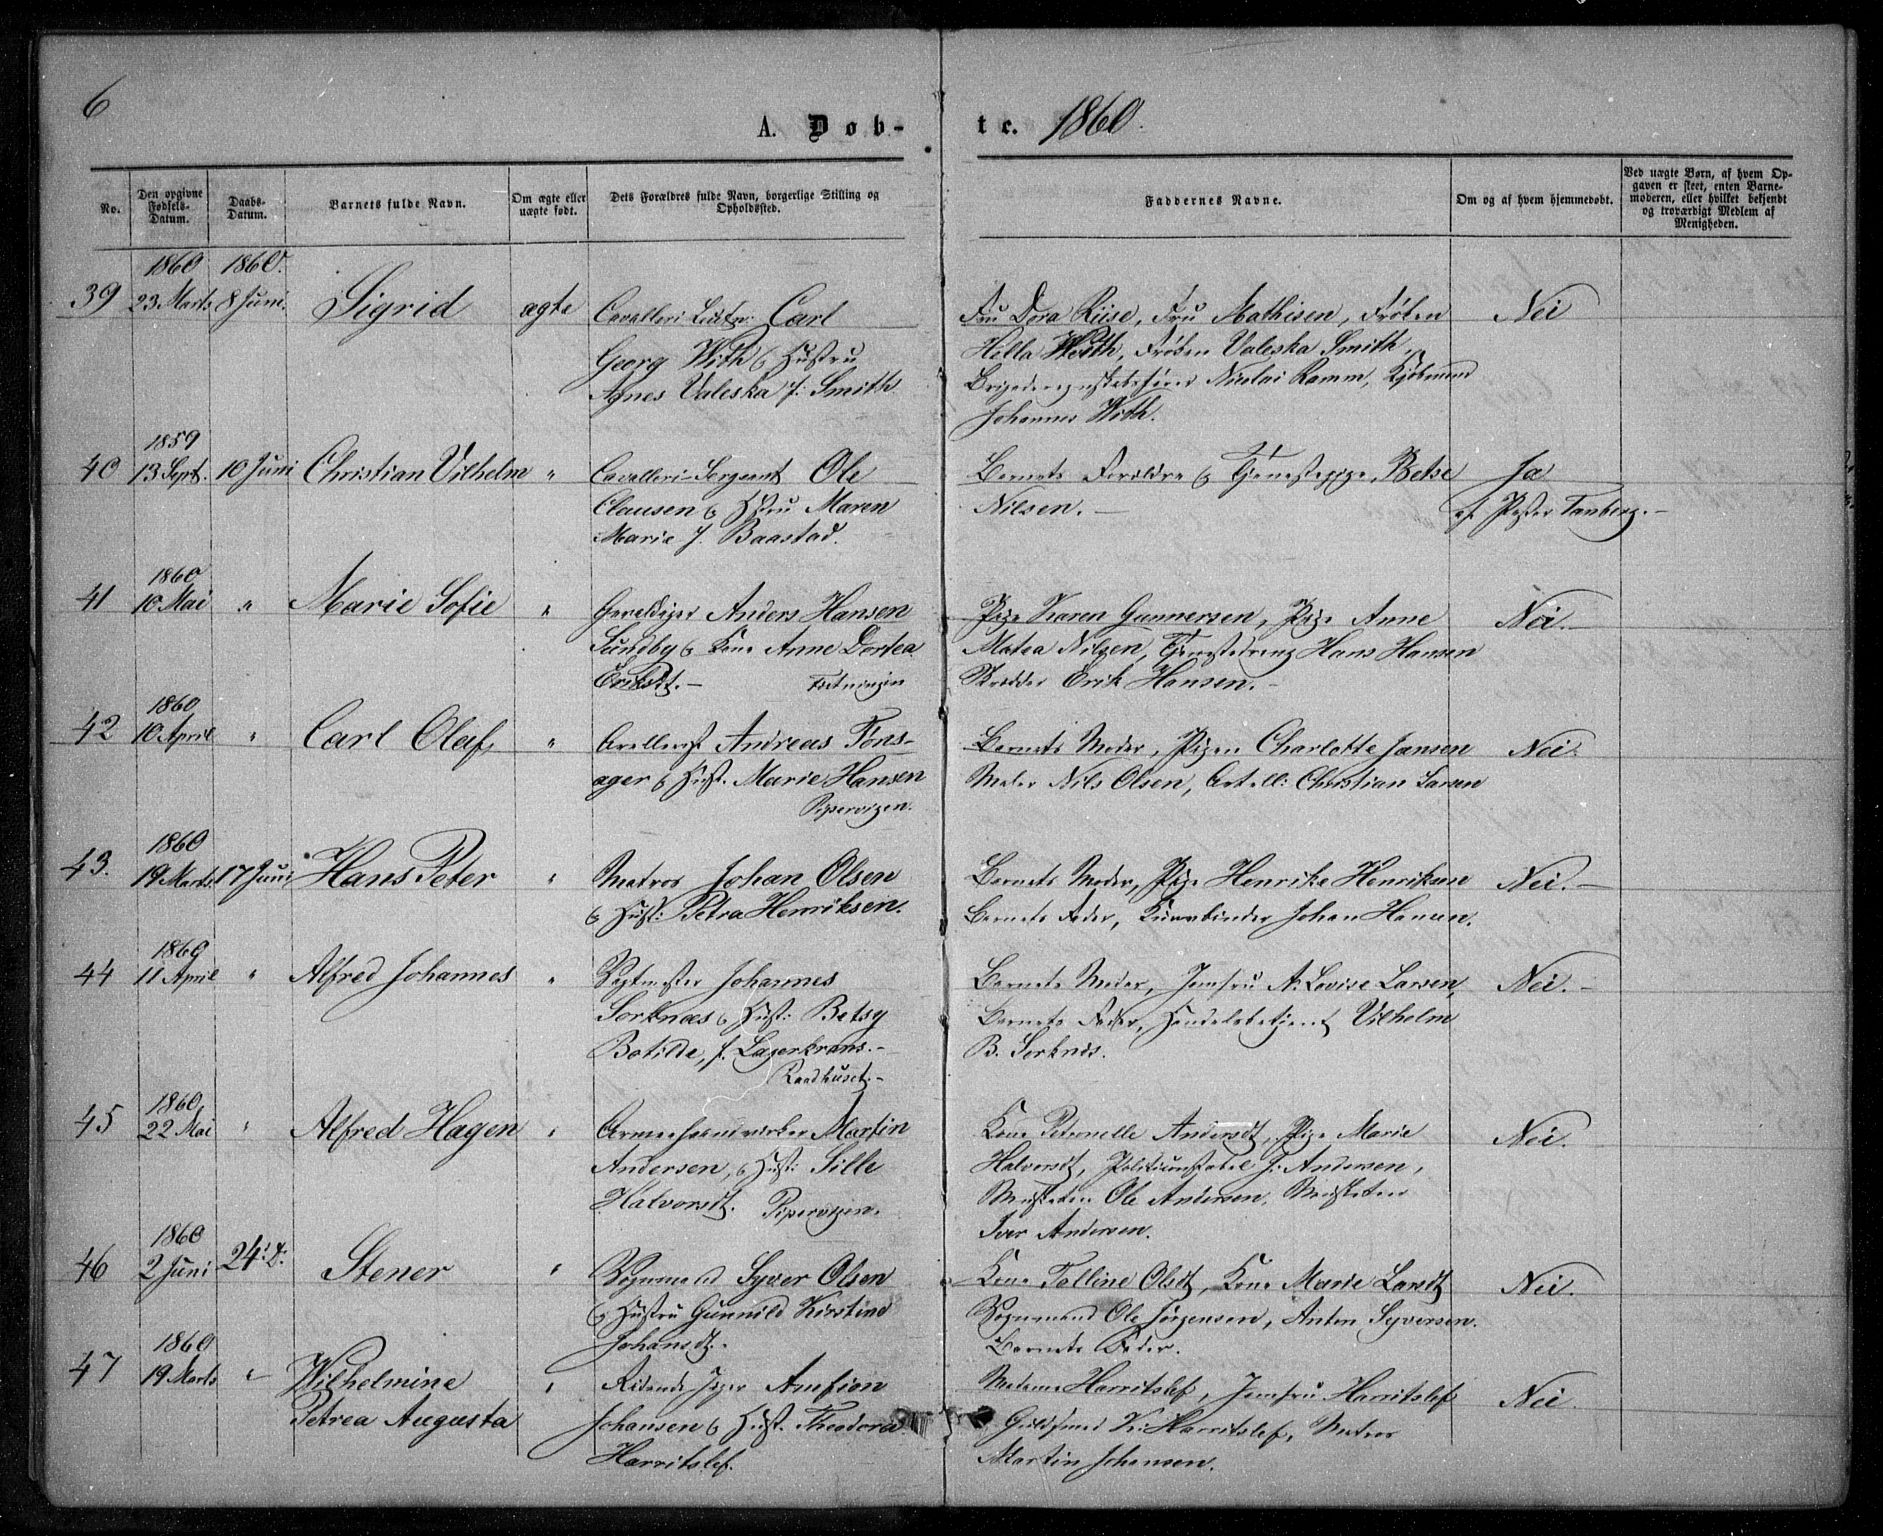 6
A. Døb-
te. 1860.
No.
Den opgivne Fødsels-Datum.
Daabs-Datum.
Barnets fulde Navn.
Om ægte eller uægte født.
Dets Forældres fulde Navn, borgerlige Stilling og Opholdssted.
Faddernes Navne.
Om og af hvem hjemmedøbt.
Ved uægte Børn, af hvem Opgaven er skeet, enten Barnemoderen, eller hvilket bekjendt og troværdigt Medlem af Menigheden.
1860 1860.
39 23 Marts 8 Juni. Sigrid ægte Cavalleri Carl
Georg With & Hustru
Agnes Valeska f: Smith
Fru Dora Riise, Fru Mathisen, Frøken Nei
Hella With, Frøken Valeska Smith,
Nicolai Ramm, Kjøbmand
Johannes With.
1859
40 13 Sept. 10 Juni Christian Vilhelm " Cavalleri-Sergeant Ole
Clausen & Hstru Maren
Marie f. Baastad.
Barnets Forældre & Tjenestepige Betse Ja
Nilsen. — af Pastor Tanberg. —
1860
41 10 Mai " Marie Sofie " Anders Hansen
Sundby & Kone Anne Dortea
Eriksdt. — Fæstningen
Pige Karen Gunnersen, Pige Anne Nei.
Matea Nilsen, Tjenestedreng Hans Hansen
Skrædder Erik Hansen. —
1860
42 10 April " Carl Olaf " Andreas Töns-
ager & Hust. Marie Hansen
Pipervigen.
Barnets Moder, Pigen Charlotte Jansen Nei.
Maler Nils Olsen, Artell: Christian Larsen
1860
43. 19 Marts 17 Juni Hans Peter " Matros Johan Olsen
& Hust: Petra Henriksen.
Barnets Moder, Pige Henrike Henriksen Nei. —
Barnets Fader, Kurvebinder Johan Hansen.
1860
44 11 April " Alfred Johannes " Vagtmester Johannes
Sorknæs & Hust: Betsy
Botilde, f. Lagerkrans. —
Raadhuset. —
Barnets Moder, Jomfru A. Lovise Larsen, Nei. —
Barnets Fader, Handelsbetjent Vilhelm
B. Sorknes.
1860
45 22 Mai " Alfred Hagen " Armeehaandverker Martin
Andersen, & Hust: Sille
Halvorsdt. Pipervigen.
Kone Petronelle Andersdt, Pige Marie Nei.
Halvorsdt, Politiconstabel J. Andersen,
Musketer Ole Andersen, Musketer
Iver Andersen.
1860
46 2 Juni 24. D: Stener " Vognmand Syver Olsen
& Hustru Gunnild Kirstine
Johansdt.
Kone Talline Olsdt, Kone Marie Larsdt Nei.
Vognmand Ole Jörgensen, Anton Syversen.
Barnets Fader.
1860
47 19 Marts " Wilhelmine " Ridende Jæger Amfion
Petrea Augusta Johansen & Hust. Theodora
Harritslef.
Madame Harritslef, Jomfru Harritslef Nei.
Guldsmed K. Harritslef, Matros
Martin Johansen.